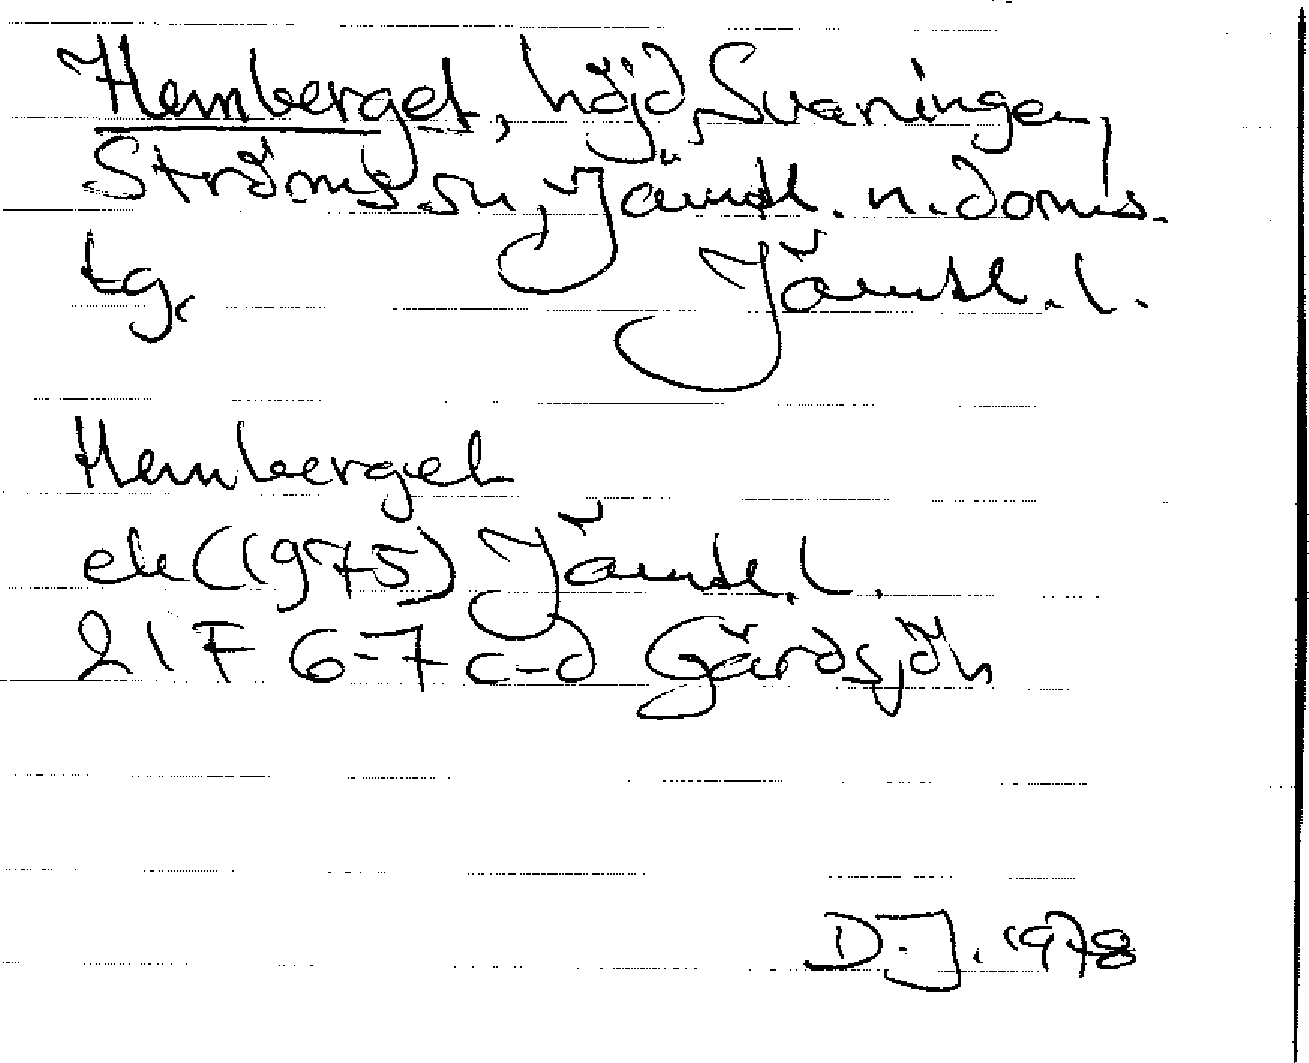 Hemberget, höjd, Svaningen,
Ströms sn, Jämtl. n. doms.
tg. Jämtl. l.
Hemberget
ek (1975) Jämtl. l.
21 F 6-7 c-d Gärdsjön
D.J. 1978